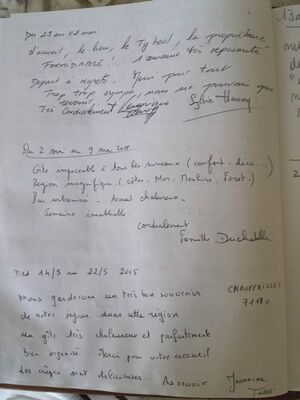 Du 25 au 02 mai
L'accueil, le lieu, le Ty beol, la propriétaire
FORMIDABLE ! 1 semaine très reposante
Départ à regrets. Merci pour tout
Trop trop sympa, nous ne pouvons que
revenir.
Très Cordialement
Du 2 mai au 9 mai
Gîte impeccable à tous les niveaux (confort - déco...)
Région magnifique (côtes - Mer - Moulins - Foret.)
Peu urbanisé - Accueil chaleureux -
Semaine inoubliable.
Cordialement
Famille
14/5 au 22/5 2015
CHAUFFAILLES
71170
Nous garderons un très bon souvenir
de notre séjour dans cette région
un gîte très chaleureux et parfaitement
bien organisé. Merci pour votre accueil
Les crêpes sont délicieuses. Au revoir
Jeannine